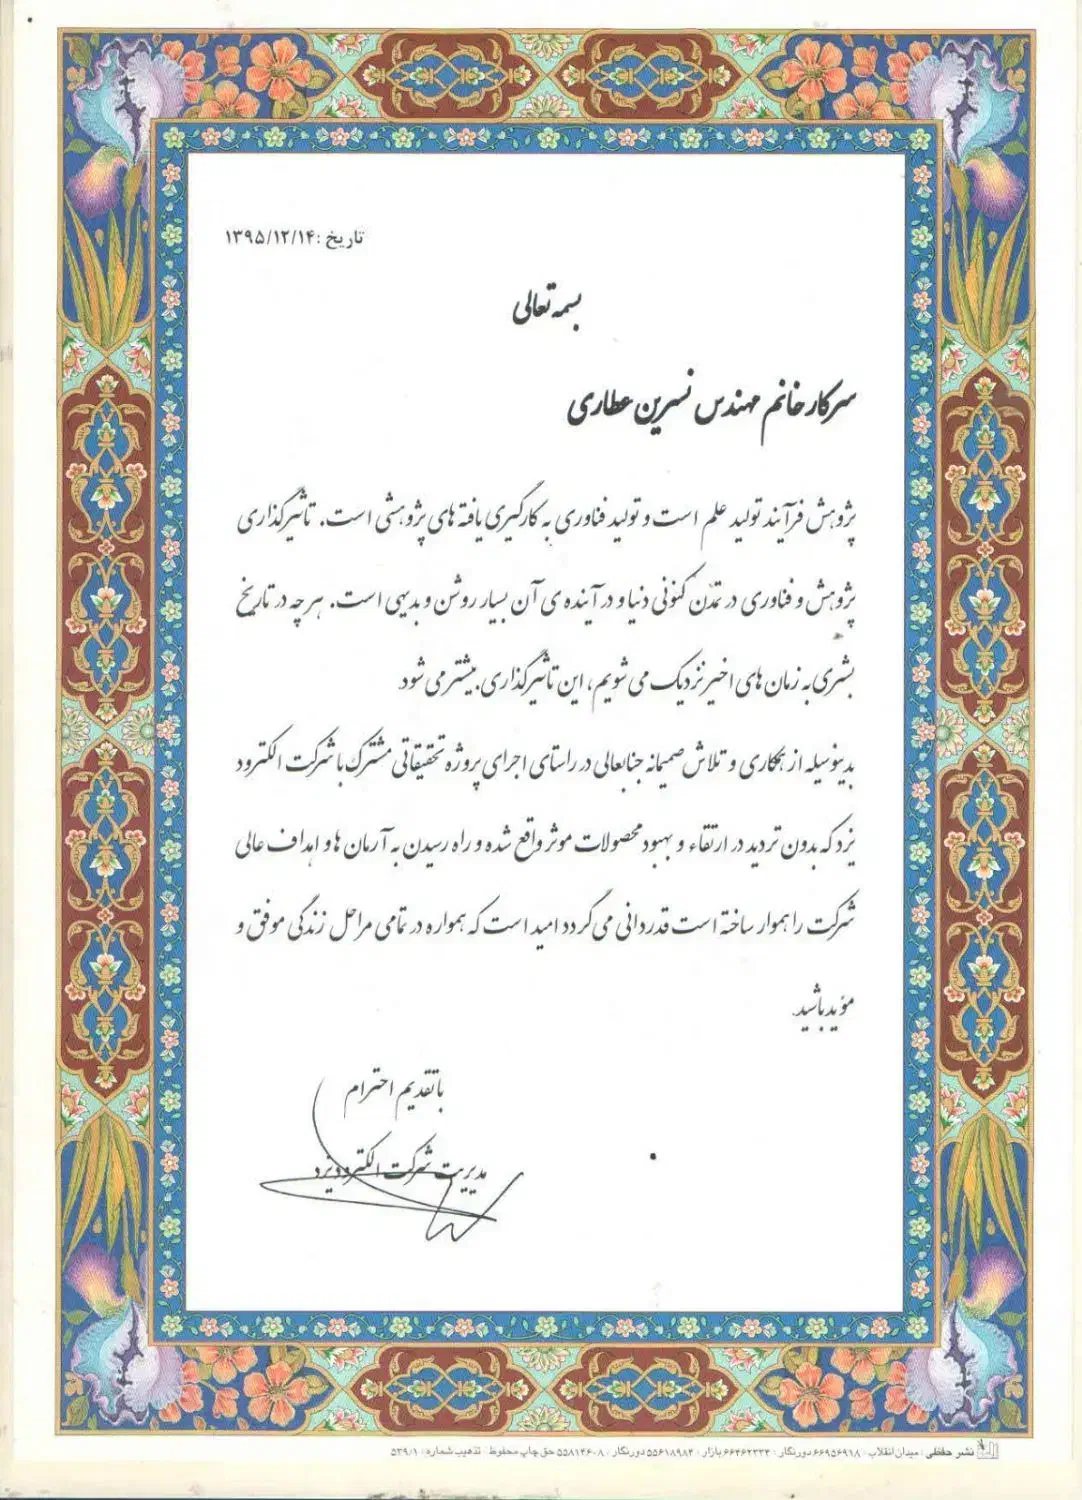 تاریخ :۱۳۹۵/۱۲/۱۴
بسمه تعالی
سرکار خانم مهندس نسرین عطاری
پژوهش فرآیند تولید علم است و تولید فناوری به کارگیری یافته های پژوهشی است. تاثیرگذاری
پژوهش و فناوری در تمدن کنونی دنیا و در آینده ی آن بسیار روشن و بدیهی است. هر چه در تاریخ
بشری به زمان های اخیر نزدیک می شویم، این تاثیرگذاری بیشتر می شود
بدینوسیله از همکاری و تلاش صمیمانه جنابعالی در راستای اجرای پروژه تحقیقاتی مشترک با شرکت الکترود
یزد که بدون تردید در ارتقاء و بهبود محصولات موثر واقع شده و راه رسیدن به آرمان ها و اهداف عالی
شرکت را هموار ساخته است قدردانی می گردد امید است که همواره در تمامی مراحل زندگی موفق و
مؤید باشید.
با تقدیم احترام
مدیریت شرکت الکترود یزد
نشر حفظی : میدان انقلاب : ۶۶۹۵۶۹۱۸ دورنگار : ۶۶۴۶۲۳۳۳ بازار : ۵۵۶۱۸۹۸۳ دورنگار : ۵۵۸۱۴۶۰۸ حق چاپ محفوظ تذهیب شماره : ۵۳۹/۱